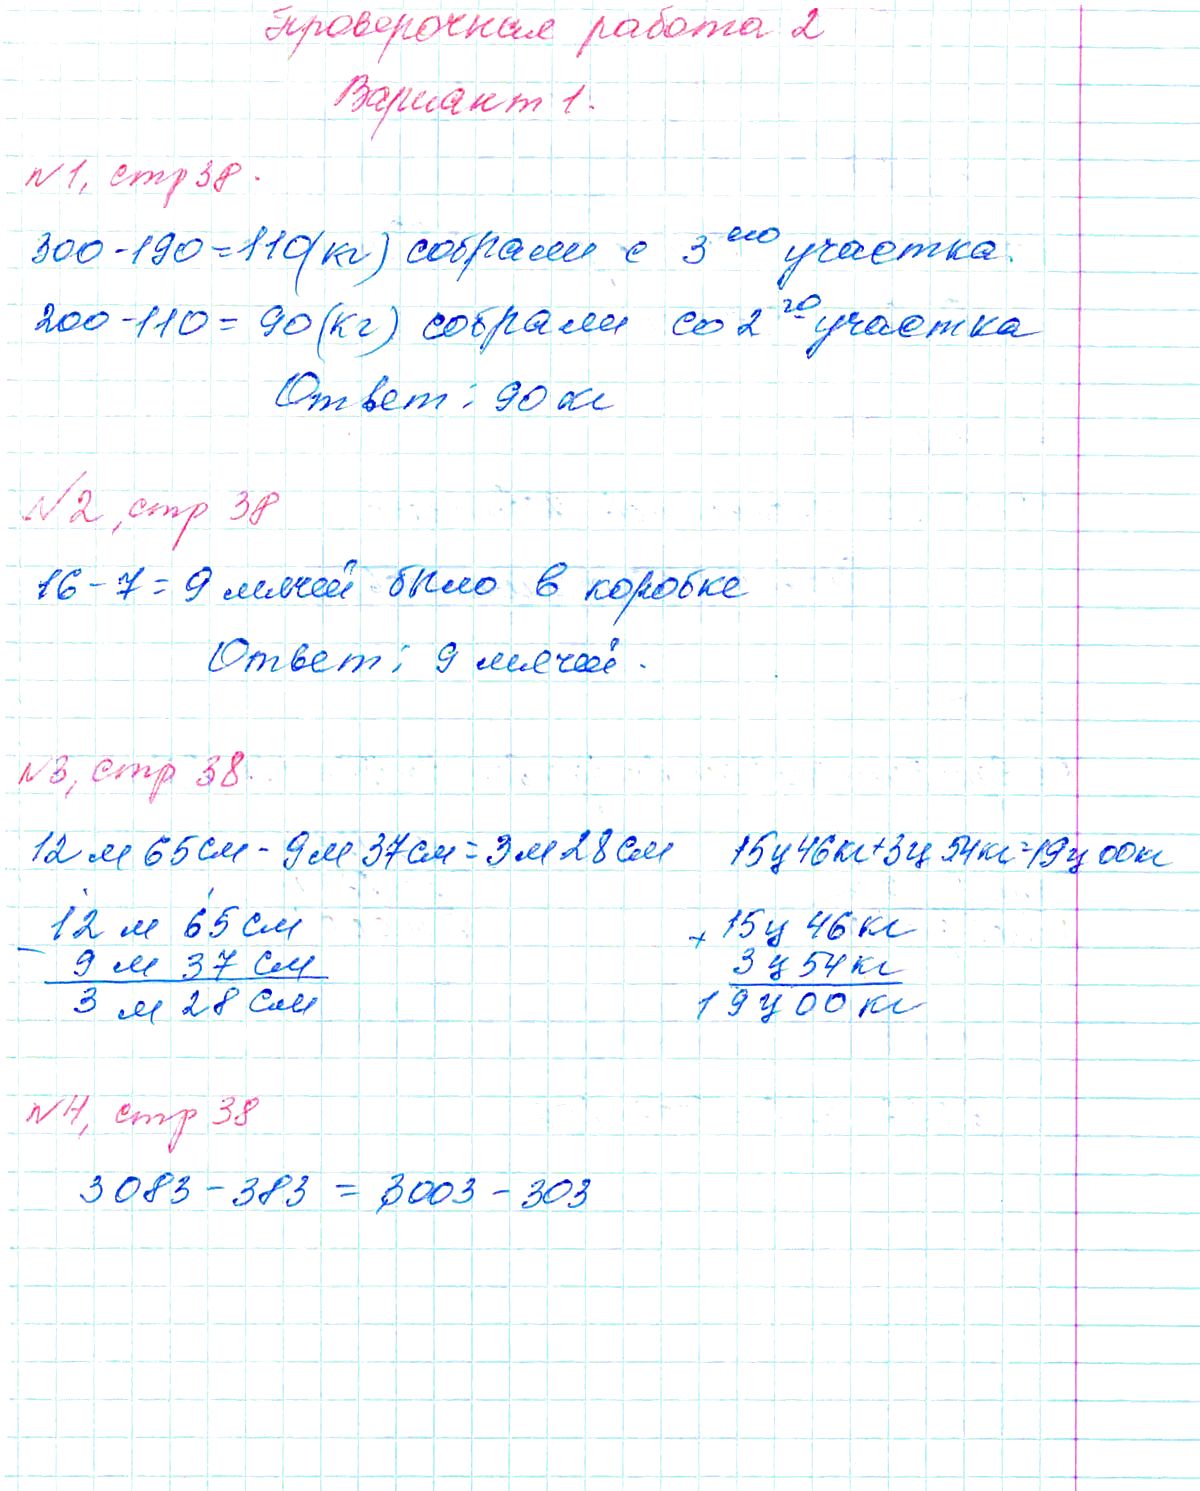 Проверочная работа 2
Вариант 1.
№1, стр 38.
300-190=110(кг) собрали с 3его участка.
200-110=90(кг) собрали со 2го участка
Ответ: 90 кг
№2, стр 38
16-7=9 мячей было в коробке
Ответ: 9 мячей.
№3, стр 38.
12 м 65 см - 9 м 37 см = 3 м 28 см 15ц 46кг+3ц 54кг=19ц 00кг
12 м 65 см
- 9 м 37 см
3 м 28 см
+ 15ц 46 кг
3ц 54 кг
19ц 00 кг
№4, стр 38
3083-383 = 3003-303